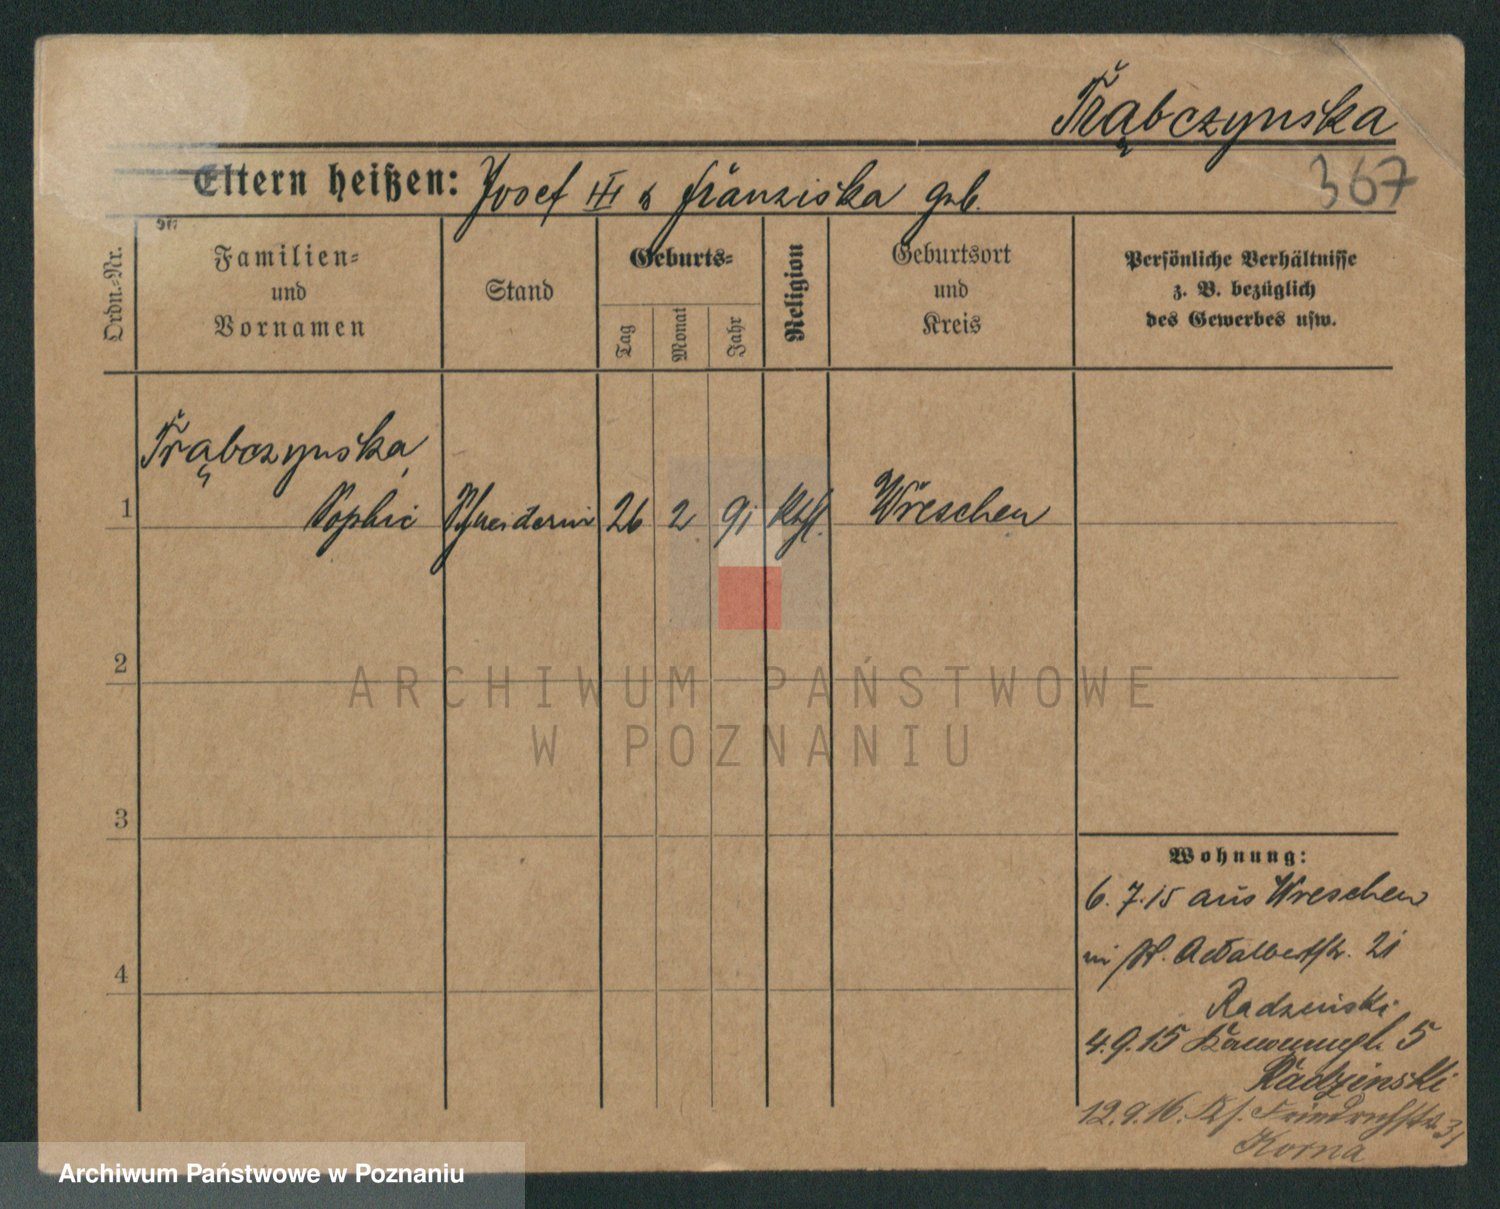 Trąbczynska
367
Eltern heißen: Josef III & Franziska geb.
Ordn.-Nr.
Familien-
und
Vornamen
Stand
Geburts-
Tag
Monat
Jahr
Religion
Geburtsort
und
Kreis
Persönliche Verhältnisse
z. B. bezüglich
des Gewerbes usw.
Trąbczynska,
1 Sophie Schneiderin 26 2 91 Kath. Wreschen
2
ARCHIWUM PAŃSTWOWE
W POZNANIU
3
4
Wohnung:
6.7.15 aus Wreschen
Adalbertstr. 21
Radzinski
4.9.15 5
Radzinski
12.9.16. Friedrichstr. 31
Korna
Archiwum Państwowe w Poznaniu